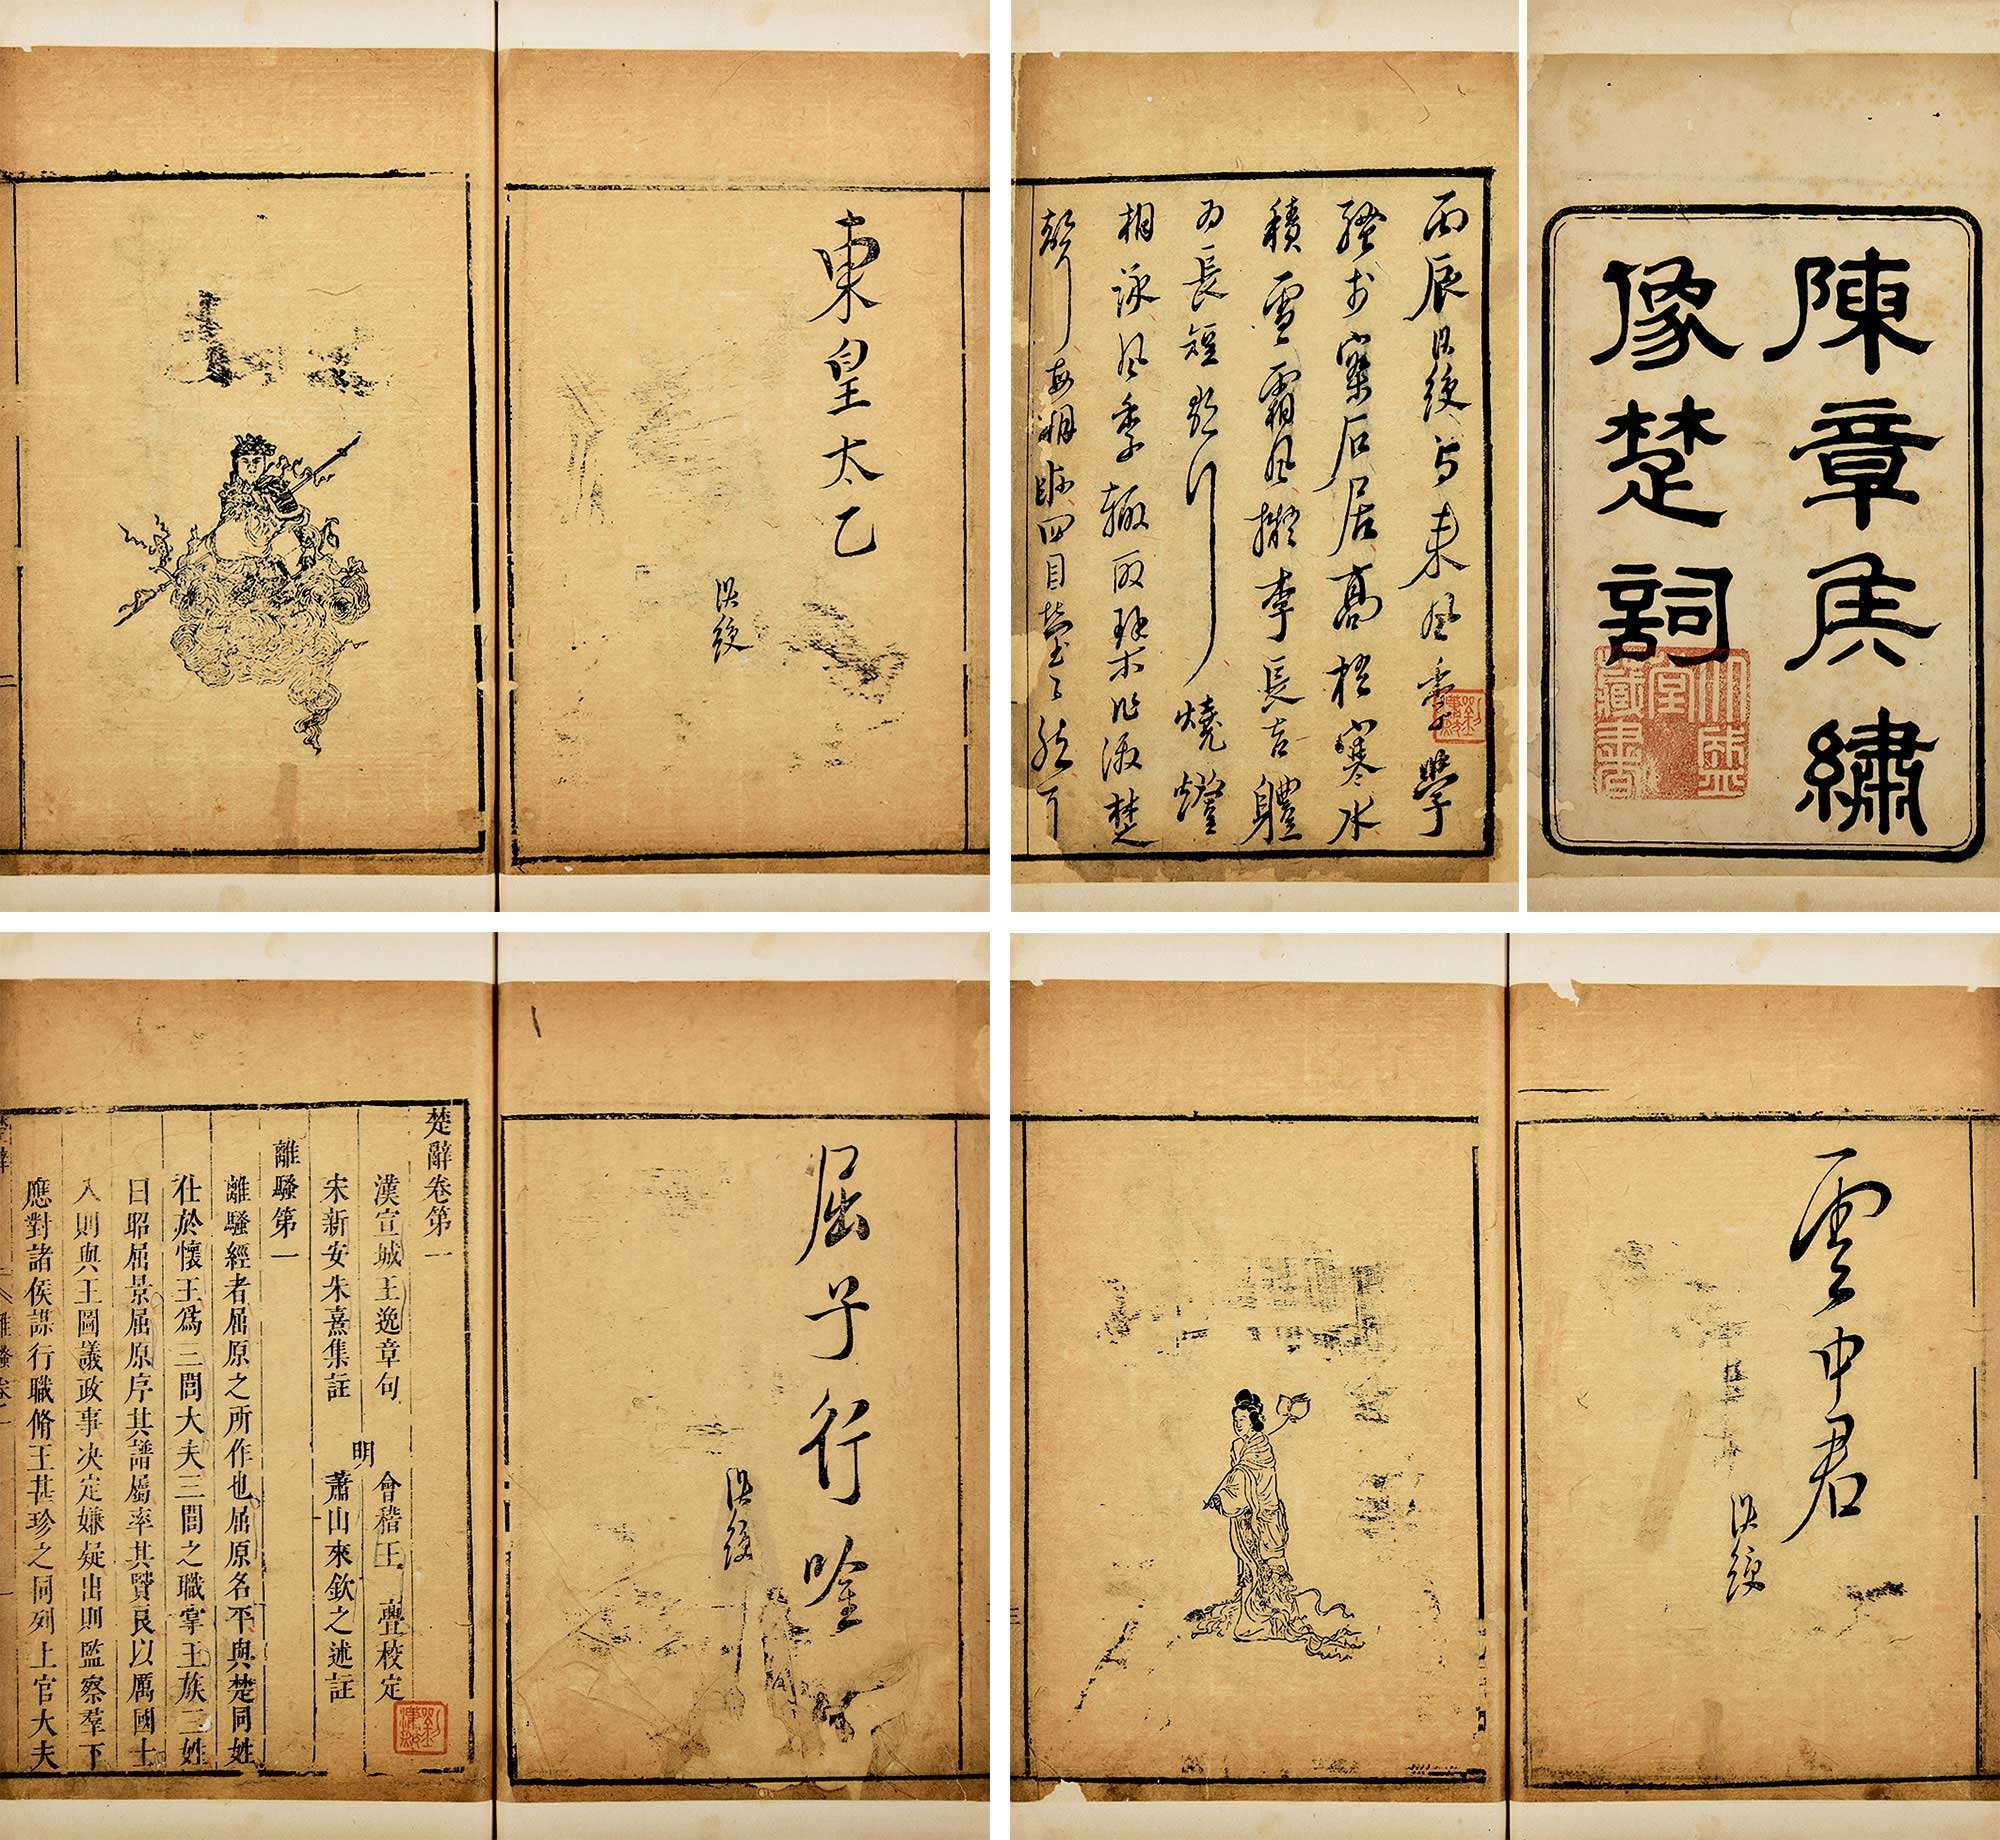 陳章侯繡
像楚詞
丙辰洪綬與來風季學
騷於石居高梧寒水
積雪霜風擬李長吉體
為長短歌行燒燈
相詠風季輒取琴作激楚
聲每相眎四目瑩瑩然下
東皇太乙
洪綬
雲中君
洪綬
屈子行吟
洪綬
楚辭卷第一
漢宣城王逸章句
宋新安朱熹集註
明
會稽王亹校定
蕭山來欽之述註
離騷第一
離騷經者屈原之所作也屈原名平與楚同姓
仕於懷王爲三閭大夫三閭之職掌王族三姓
曰昭屈景屈原序其譜屬率其賢良以厲國士
入則與王圖議政事決定嫌疑出則監察羣下
應對諸侯謀行職脩王甚珍之同列上官大夫